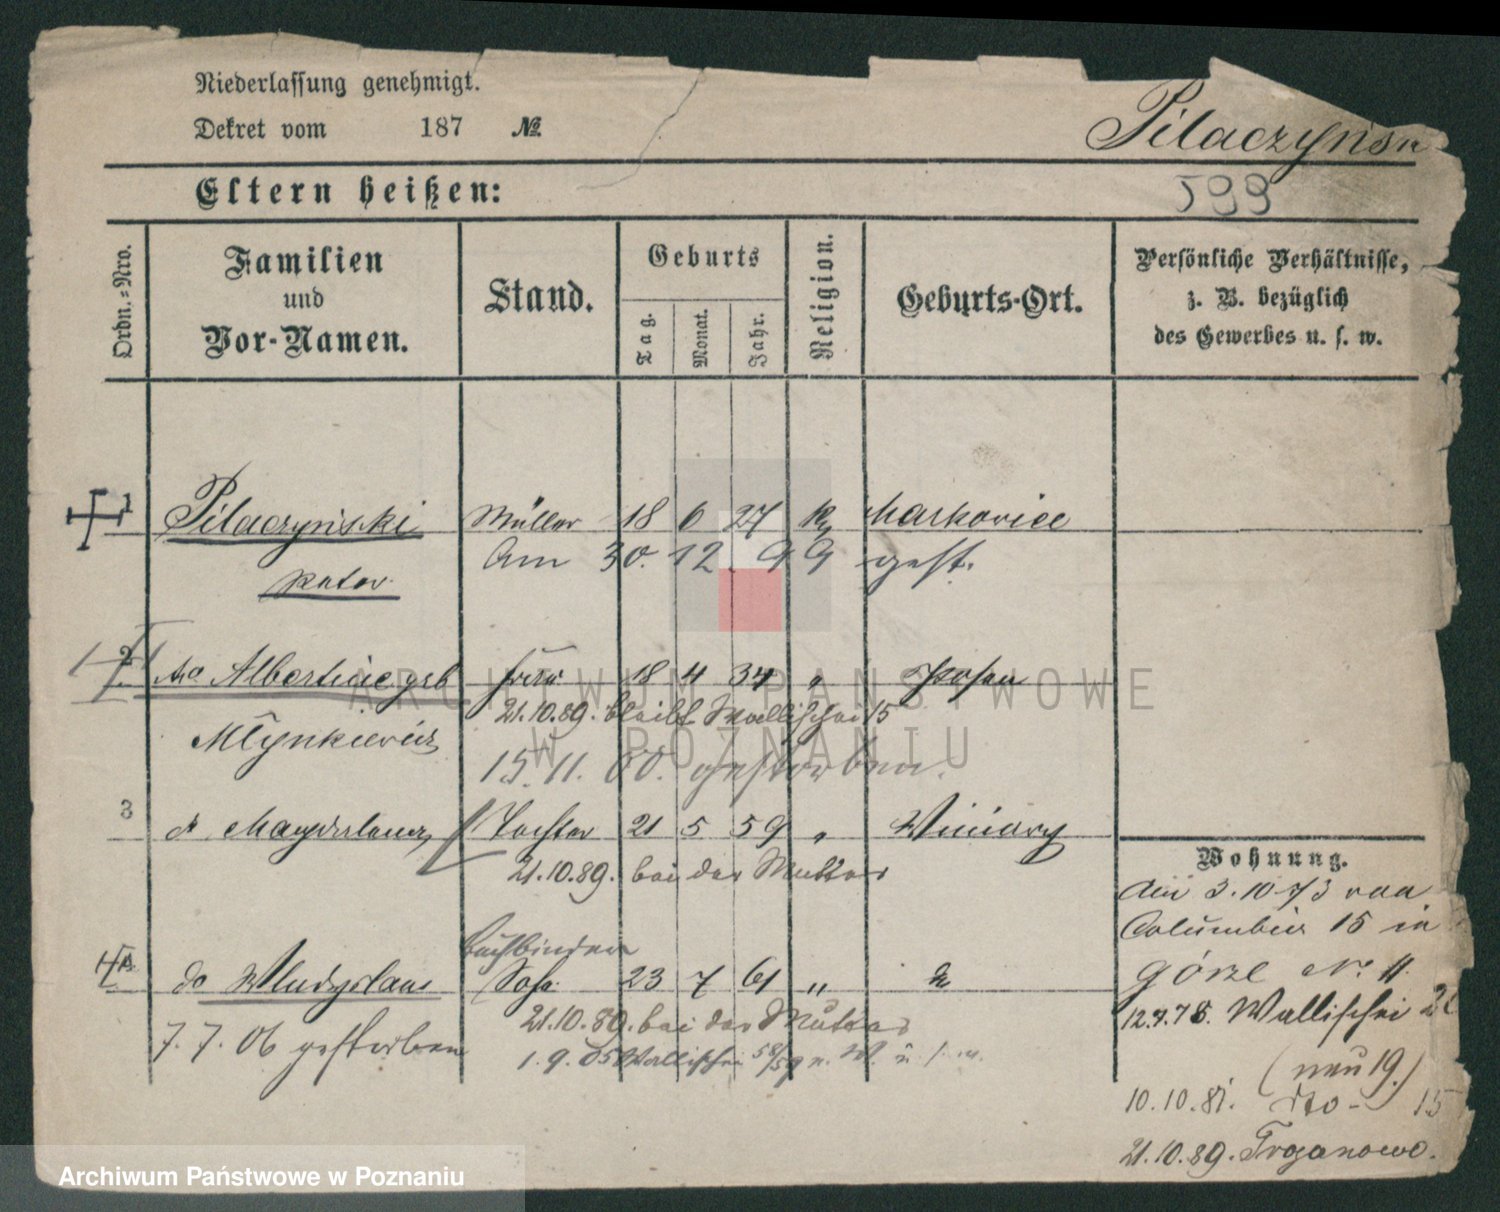 Niederlassung genehmigt.
Dekret vom 187 №
Pilaczyns
599
Eltern heißen:
Ordn.=Nro.
Familien
und
Vor-Namen.
Stand.
Geburts
Tag.
Monat.
Jahr.
Religion.
Geburts-Ort.
Persönliche Verhältnisse,
z. B. bezüglich
des Gewerbes u. s. w.
1 Pilaczyński Müller 18 6 27 Markovice
Am 30. 12. 99 gest.
Peter
2 Albertine geb Frau 18 4 34 " Posen
21.10.89. bleibt Wallischei 15
Młynkiewicz
15. 11. gestorben.
3 Magdalena Tochter 21 5 59 " Winiary
21.10.89. bei der Mutter
Wohnung.
3.10.73 von
Columbia 15 in
Buchbinder
4 do Wladyslaus Sohn 23 7 61 "
Górze No 11.
21.10.89. bei der Mutter
12.7.78. Wallischei
7. 7. 06 gestorben
1. 9. 05 Wallischei 58/59
(neu 19.)
10.10.81. dto - 15
21.10.89.
ARCHIWUM PAŃSTWOWE
W POZNANIU
Archiwum Państwowe w Poznaniu